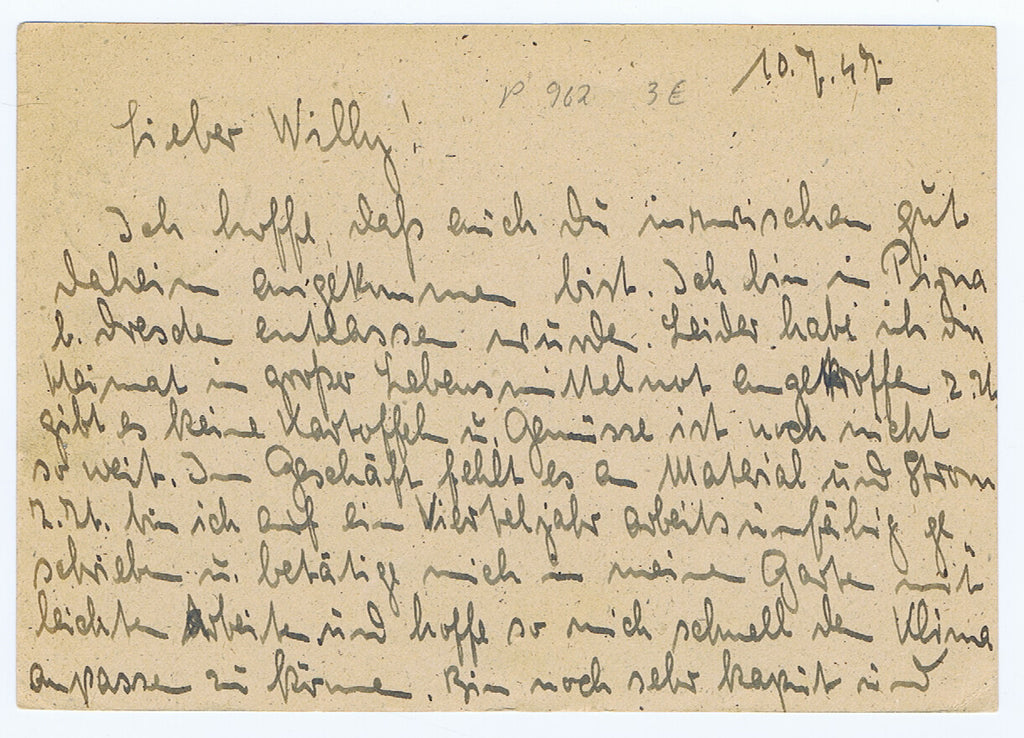 10.7.47.
P 962 3€
Lieber Willy!
Ich hoffe, daß auch Du inzwischen gut
daheim angekommen bist. Ich bin in Pirna
b. Dresden entlassen wurden. Leider habe ich die
Heimat in großer Lebensmittelnot angetroffen z. Zt.
gibt es keine Kartoffeln u. Gemüse ist noch nicht
so weit. Im Geschäft fehlt es an Material und Strom
z. Zt. bin ich auf ein Vierteljahr arbeitsunfähig ge
schrieben u. betätige mich in meinem Garten mit
leichten Arbeiten und hoffe so mich schnell dem Klima
anpassen zu können. Bin noch sehr kaput und